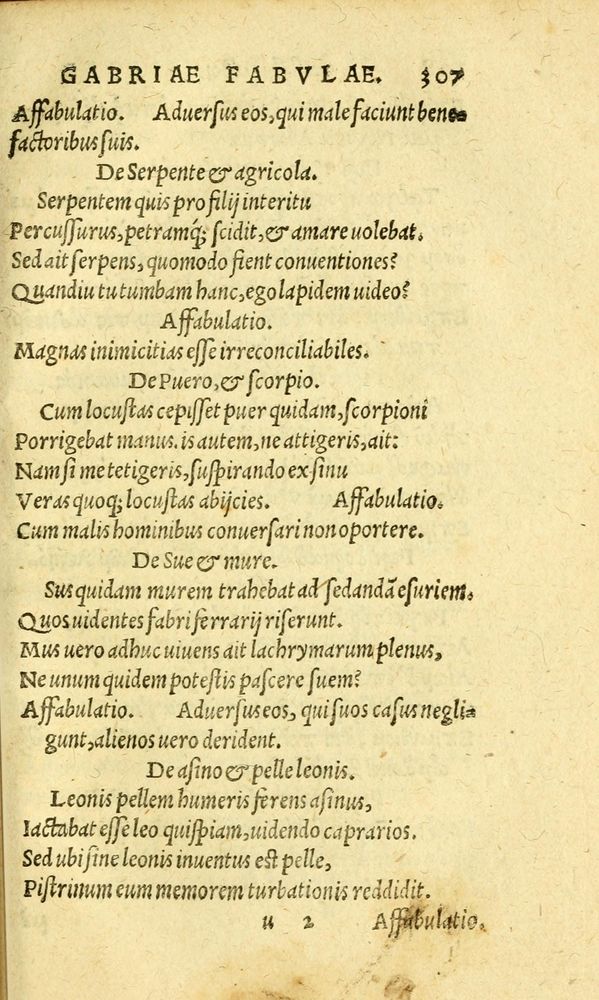 GABRIAE FABVLAE. 307
Affabulatio. Aduerſus eos, qui male faciunt bene-
factoribus ſuis.
De Serpente & agricola.
Serpentem quis pro filij interitu
Percuſſurus, petramq́; ſcidit, & amare uolebat.
Sed ait ſerpens, quomodo fient conuentiones?
Quandiu tu tumbam hanc, ego lapidem uideo?
Affabulatio.
Magnas inimicitias eſſe irreconciliabiles.
De Puero, & ſcorpio.
Cum locuſtas cepiſſet puer quidam, ſcorpioni
Porrigebat manus. is autem, ne attigeris, ait:
Nam ſi me tetigeris, ſuſpirando ex ſinu
Veras quoq; locuſtas abijcies. Affabulatio.
Cum malis hominibus conuerſari non oportere.
De Sue & mure.
Sus quidam murem trahebat ad ſedandā eſuriem.
Quos uidentes fabri ferrarij riſerunt.
Mus uero adhuc uiuens ait lachrymarum plenus,
Ne unum quidem poteſtis paſcere ſuem?
Affabulatio. Aduerſus eos, qui ſuos caſus negli-
gunt, alienos uero derident.
De aſino & pelle leonis.
Leonis pellem humeris ferens aſinus,
Iactabat eſſe leo quiſpiam, uidendo caprarios.
Sed ubi ſine leonis inuentus eſt pelle,
Piſtrinum eum memorem turbationis reddidit.
u 2 Affabulatio.